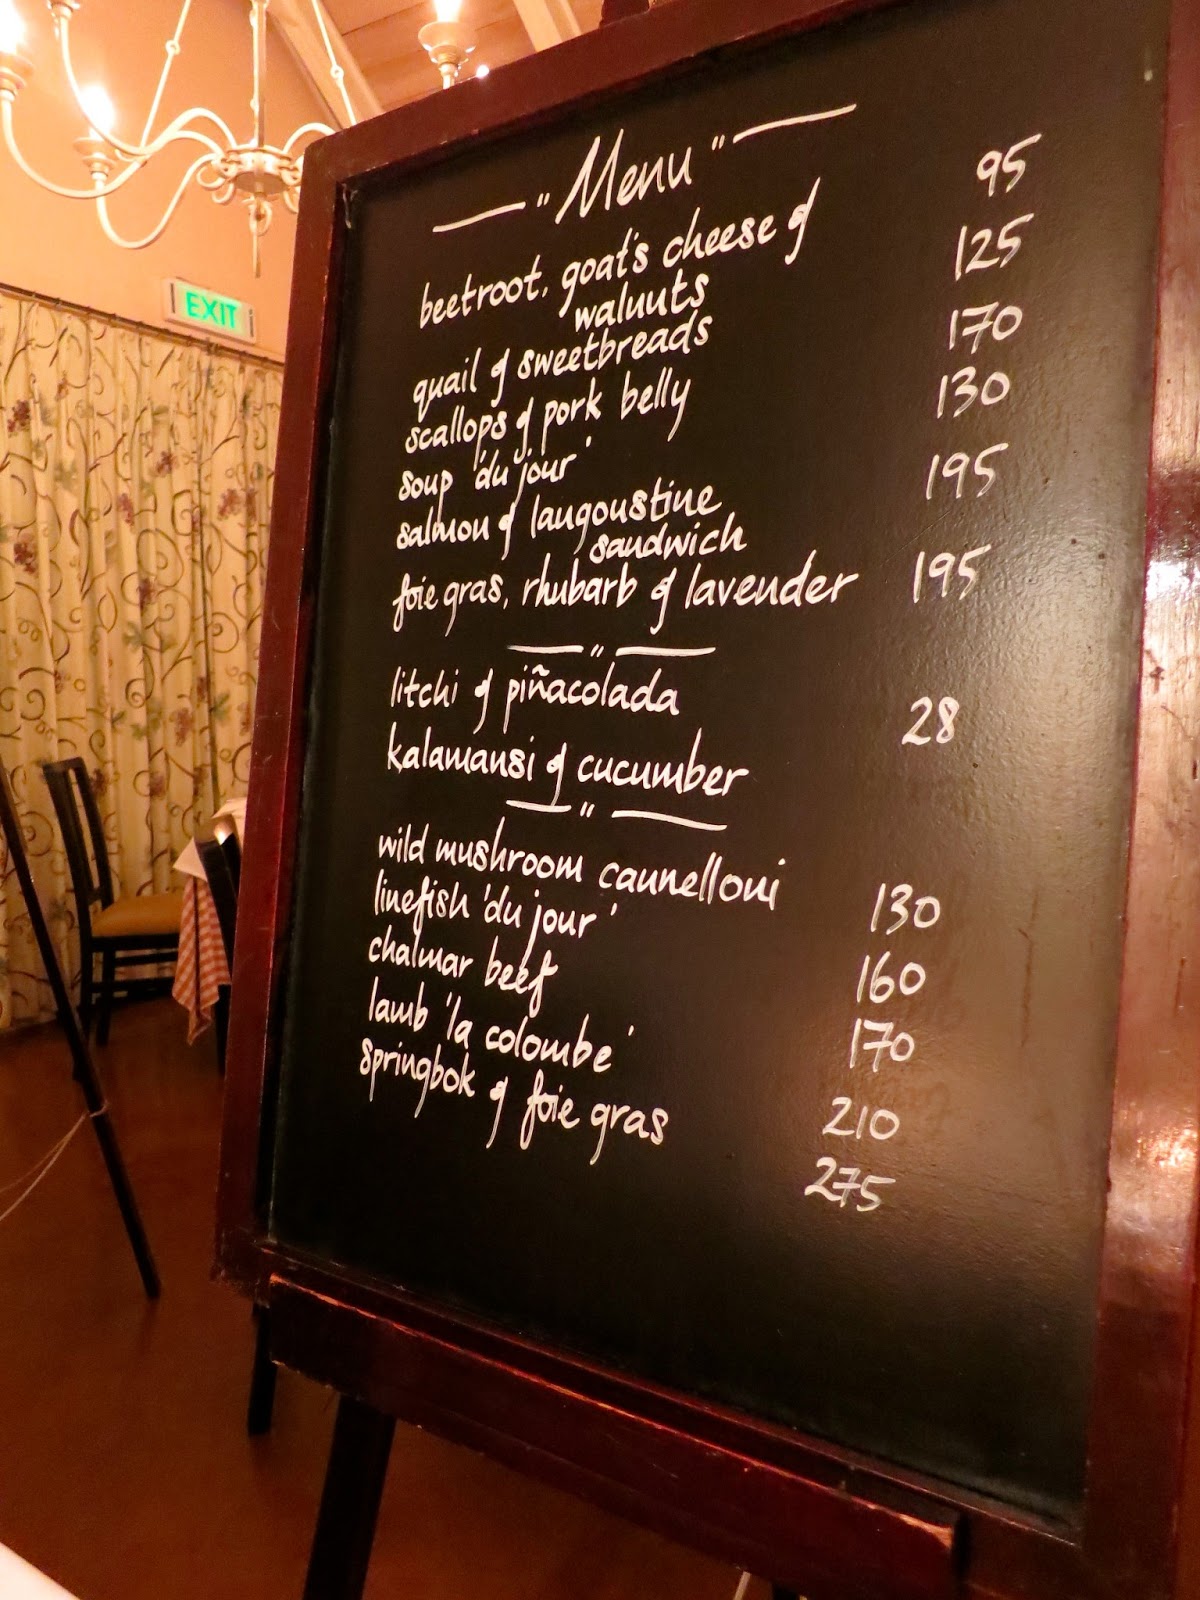 "Menu"
beetroot, goat's cheese & 95
walnuts
quail & sweetbreads 125
scallops & pork belly 170
soup 'du jour' 130
salmon & langoustine 195
sandwich
foie gras, rhubarb & lavender 195
"
litchi & piñacolada 28
kalamansi & cucumber
"
wild mushroom cannelloni 130
linefish 'du jour' 160
chalmar beef 170
lamb 'la colombe' 210
springbok & foie gras 275
EXIT